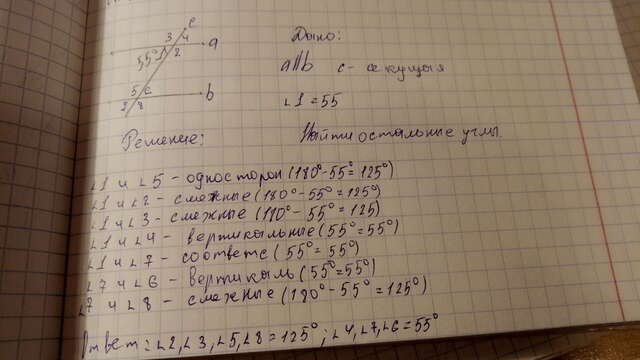 c
3 4
a
55° 1 2
5 6
b
2 8
Дано:
a||b c - секущая
∠1 = 55
Решение: Найти остальные углы.
∠1 и ∠5 - односторон (180° - 55° = 125°)
∠1 и ∠2 - смежные (180° - 55° = 125°)
∠1 и ∠3 - смежные (180° - 55° = 125)
∠1 и ∠4 - вертикальные (55° = 55°)
∠1 и ∠7 - соответс (55° = 55°)
∠7 и ∠6 - вертикаль (55° = 55°)
∠7 и ∠8 - смежные (180° - 55° = 125°)
Ответ: ∠2, ∠3, ∠5, ∠8 = 125°; ∠4, ∠7, ∠6 = 55°